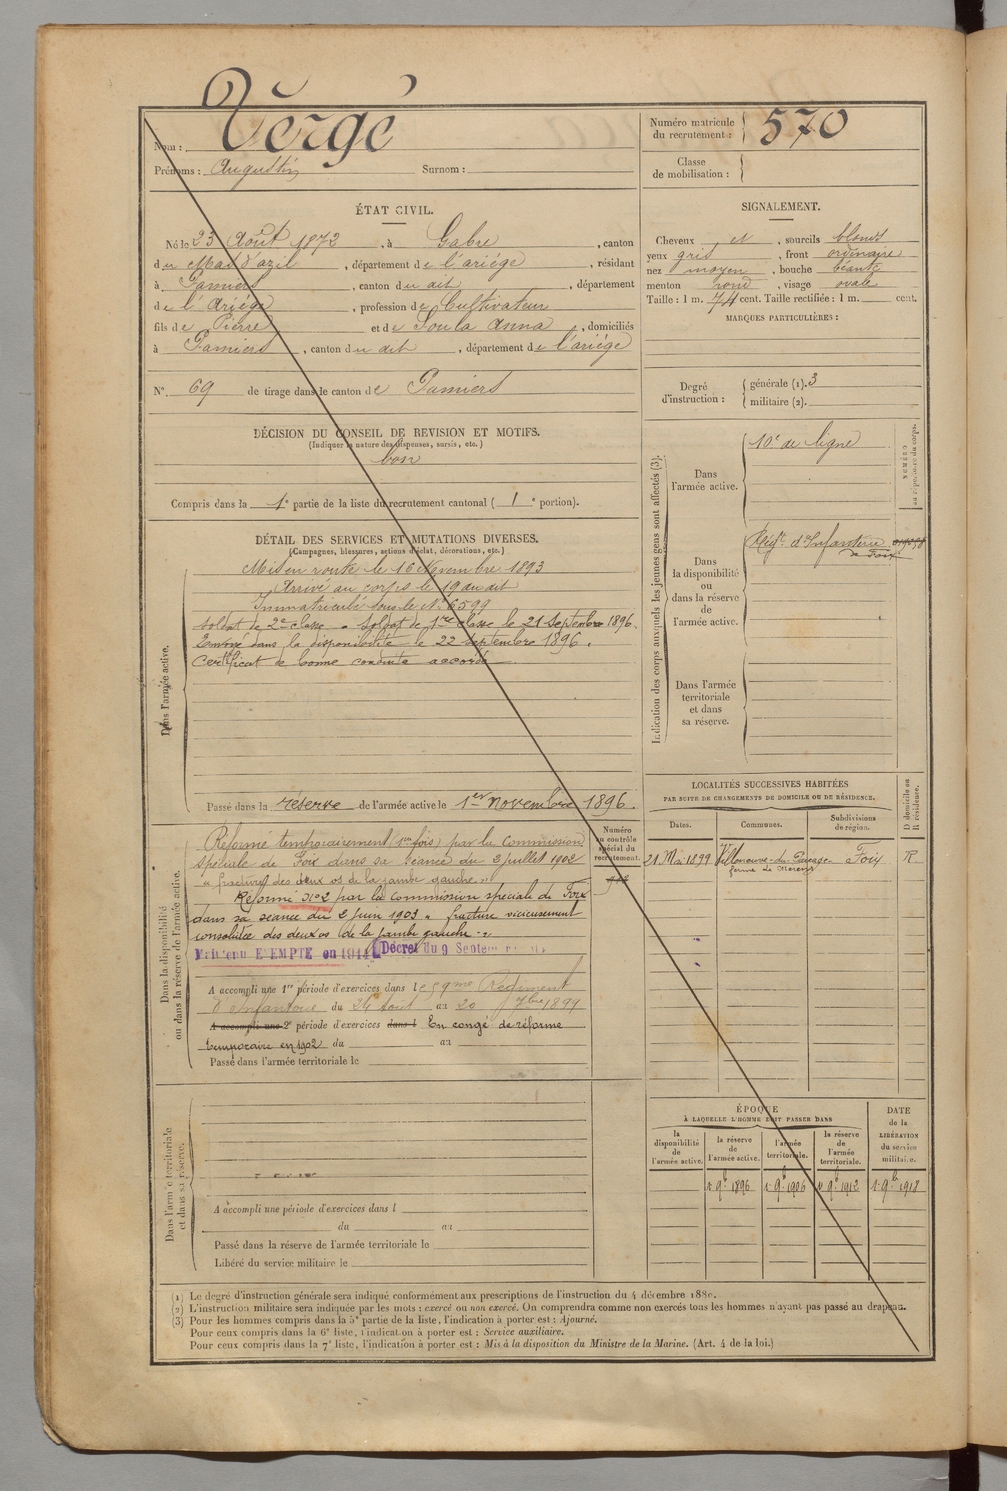 Vergé
Nom :
Prénoms : Augustin Surnom :
Numéro matricule du recrutement : 570
Classe de mobilisation :
ÉTAT CIVIL.
Né le 23 Août 1872, à Gabre, canton
du Mas d'azil, département de l'ariége, résidant
à Pamiers, canton du dit, département
de l'Ariége, profession de Cultivateur
fils de Pierre et de Soula Anna, domiciliés
à Pamiers, canton du dit, département de l'ariége
N° 69 de tirage dans le canton de Pamiers
SIGNALEMENT.
Cheveux et, sourcils blonds
yeux gris, front ordinaire
nez moyen, bouche béante
menton rond, visage ovale
Taille : 1 m. 74 cent. Taille rectifiée : 1 m. cent.
MARQUES PARTICULIÈRES :
Degré d'instruction : générale (1). 3
militaire (2).
DÉCISION DU CONSEIL DE REVISION ET MOTIFS.
(Indiquer la nature des dispenses, sursis, etc.)
bon
Compris dans la 1e partie de la liste du recrutement cantonal ( 1 e portion).
DÉTAIL DES SERVICES ET MUTATIONS DIVERSES.
(Campagnes, blessures, actions d'éclat, décorations, etc.)
Dans l'armée active.
Mis en route le 16 Novembre 1893
Arrivé au corps le 19 du dit
Immatriculé sous le N° 6599
soldat de 2e classe. Soldat de 1re classe le 21 Septembre 1896.
Envoyé dans la disponibilité le 22 septembre 1896.
Certificat de bonne conduite accordé
Passé dans la réserve de l'armée active le 1er novembre 1896.
Indication des corps auxquels les jeunes gens sont affectés (3).
NUMÉRO au répertoire du corps.
Dans l'armée active.
10e de ligne
Dans la disponibilité ou dans la réserve de l'armée active.
Régt d'Infanterie
de Foix
Dans l'armée territoriale et dans sa réserve.
LOCALITÉS SUCCESSIVES HABITÉES
PAR SUITE DE CHANGEMENTS DE DOMICILE OU DE RÉSIDENCE.
D domicile ou R résidence.
Dates. Communes. Subdivisions de région.
21 Mai 1899 Villeneuve-du-Pareage Foix R
Dans la disponibilité ou dans la réserve de l'armée active.
Numéro au contrôle spécial du recrutement.
Réformé temporairement (1re fois) par la Commission
spéciale de Foix dans sa séance du 2 juillet 1902
" fracture des deux os de la jambe gauche "
Réformé N°2 par la commission speciale de Foix
dans sa séance du 2 juin 1903 " fracture vicieusement
consolidée des deux os de la jambe gauche "
Maintenu EXEMPTÉ en 1914 (Décret du 9 Septembre
A accompli une 1re période d'exercices dans le 59me Régiment
d'Infanterie du 24 Aout au 20 7bre 1899
A accompli une 2e période d'exercices dans l En congé de réforme
temporaire en 1902 du au
Passé dans l'armée territoriale le
Dans l'armée territoriale et dans sa réserve.
A accompli une période d'exercices dans l
du au
Passé dans la réserve de l'armée territoriale le
Libéré du service militaire le
ÉPOQUE
À LAQUELLE L'HOMME DOIT PASSER DANS
DATE de la LIBÉRATION du service militaire.
la disponibilité de l'armée active.
la réserve de l'armée active.
l'armée territoriale.
la réserve de l'armée territoriale.
1 9b 1896 1 9b 1906 1 9b 1912 1 9b 1918
(1) Le degré d'instruction générale sera indiqué conformément aux prescriptions de l'instruction du 4 décembre 1889.
(2) L'instruction militaire sera indiquée par les mots : exercé ou non exercé. On comprendra comme non exercés tous les hommes n'ayant pas passé au drapeau.
(3) Pour les hommes compris dans la 5e partie de la liste, l'indication à porter est : Ajourné.
Pour ceux compris dans la 6e liste, l'indication à porter est : Service auxiliaire.
Pour ceux compris dans la 7e liste, l'indication à porter est : Mis à la disposition du Ministre de la Marine. (Art. 4 de la loi.)